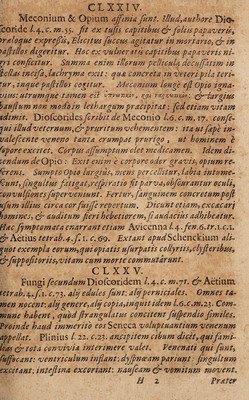 CLXXIV.
Meconium & Opium affinia sunt. illud, authore Dio-
scoride l. 4. c. m. 55. fit ex tusis capitibus & foliis papaveris,
præloque expressis, Elicitus succus agitatur in mortario, & in
pastillos digeritur. Hoc ex vulneratis capitibus papaveris ni-
gri conficitur. Summa enim illorum pellicula decussatim in
stellas incisa, lachryma exit: quæ concreta in veteri pila teri-
tur, inque pastillos cogitur. Meconium longe est Opio igna-
vius: utrumque tamen est & largius
haustum non modo in lethargum præcipitat: sed etiam vitam
adimit. Dioscorides scribit de Meconio l. 6. c. m. 17. conse-
qui illud veternum, & pruritum vehementem: ita ut sæpe in-
valescente veneno tanta erumpat prurigo, ut hominem è
sopore excitet. Corpus assumptum olet medicamen. Idem di-
cendum de Opio: Exit enim è corpore odor gravis, opium re-
ferens. Sumpto Opio largius, mens percellitur, labia intume-
scunt, singultus fatigat, respiratio fit parva, obscurantur oculi,
convulsiones superveniunt. Fertur, sanguinem concretum post
usum illius circa cor fuisse repertum. Dicunt etiam, excæcari
homines, & auditum fieri hebetiorem, si audactius adhibeatur.
Hæc symptomata enarrant etiam Avicenna l. 4. fen. 6. tr. 1. c. 1.
& Aetius tetrab. 4. s. 1. c. 69. Extant apud Schenckium ali-
quot exempla eorum, qui opiatis usurpatis collyriis, clysteribus,
& suppositoriis, vitam cum morte commutârunt.
CLXXV.
Fungi secundum Dioscoridem l. 4. c. m. 71. & Aetium
tetrab. 4. s. 1. c. 73. alij edules sunt: alij perniciales. Omnes ta-
men nocent: alij genere, alij copia, inquit idem l. 6. c. m. 23. Com-
mune habent, quod strangulatus concitent suspendio similes.
Proinde haud immeritò eos Seneca voluptuantium venenum
appellat. Plinius l. 22. c. 23. ancipitem cibum dicit, qui fami-
lias & tota convivia interimere valet. Venenati qui sunt,
suffocant: ventriculum inflant: dyspnœam pariunt: singultum
excitant: intestina exoriant: nauseam & vomitum movent.
H 2 Præter